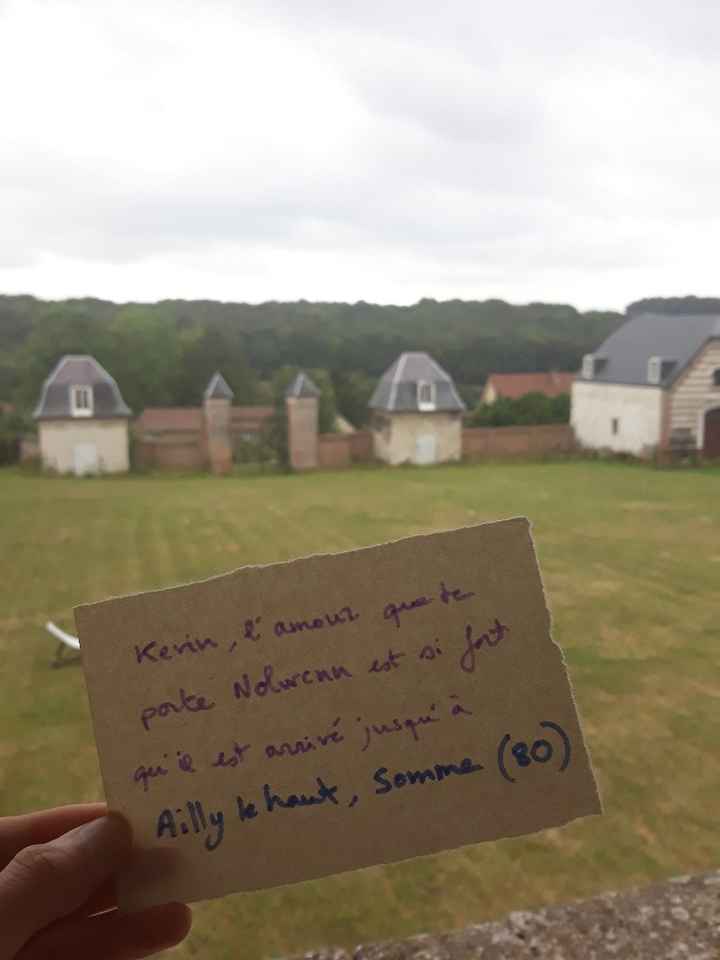 Kevin, l'amour que te
porte Nolwenn est si fort
qu'il est arrivé jusqu'à
Ailly le haut, Somme (80)